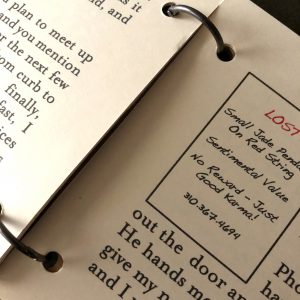 d plan to meet up
and you mention
or the next few
om curb to
finally,
fast, I
LOST
Small Jade Pend
On Red String
Sentimental Value
No Reward - Just
Good Karma!
310-367-4694
out the door
He hands m
give my
and I